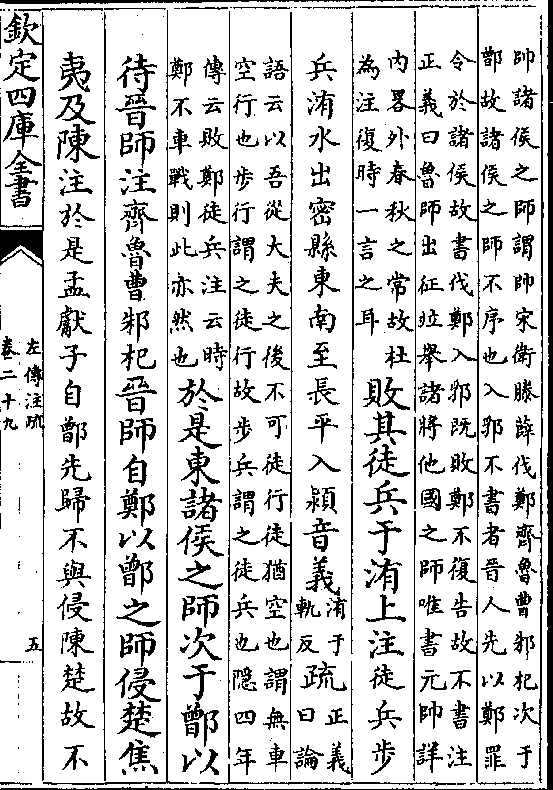 帥諸侯之師謂帥宋衞滕薛伐鄭齊魯曹邾杞次于
鄫故諸侯之師不序也入郛不書者晉人先以鄭罪
令於諸侯故書伐鄭入郛既敗鄭不復告故不書注
正義曰魯師出征竝舉諸將他國之師唯書元帥詳
内畧外春秋之常故杜
為注復時一言之耳
敗其徒兵于洧上注徒兵步
兵洧水出密縣東南至長平入潁音義
洧于
軌反
疏
正義
曰論
語云以吾從大夫之後不可徒行徒猶空也謂無車
空行也步行謂之徒行故步兵謂之徒兵也隱四年
傳云敗鄭徒兵注云時
鄭不車戰則此亦然也
於是東諸侯之師次于鄫以
待晉師注齊魯曹邾杞晉師自鄭以鄫之師侵楚焦
夷及陳注於是孟獻子自鄫先歸不與侵陳楚故不
欽定四庫全書
左傳注疏
卷二十九
五